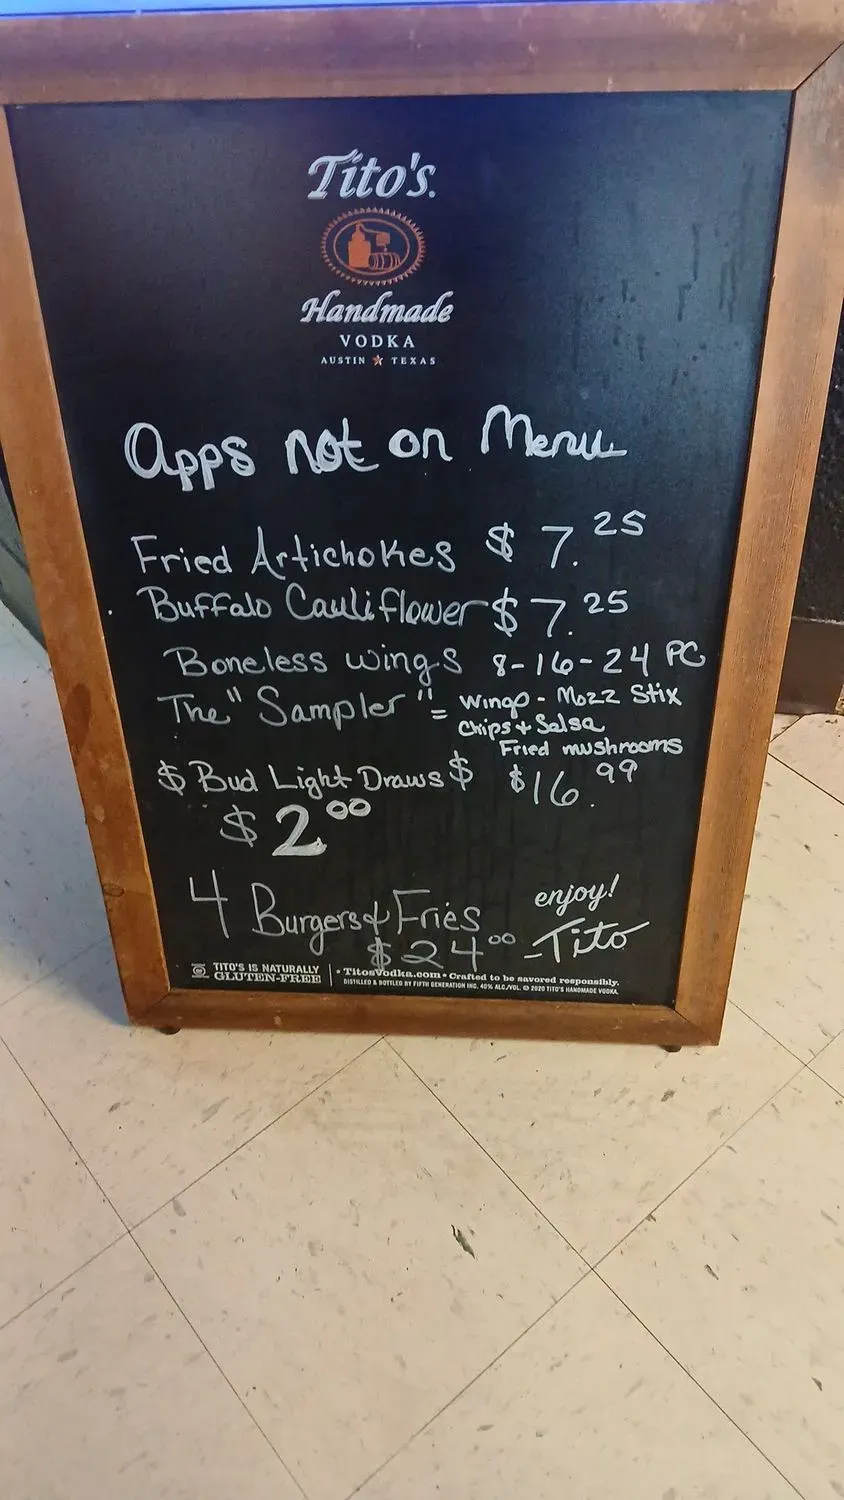 Tito's
Handmade
VODKA
AUSTIN ★ TEXAS
Apps not on Menu
Fried Artichokes $7.25
Buffalo Cauliflower $7.25
Boneless Wings 8-16-24 PC
The "Sampler" = Wings - Mozz Stix
Chips + Salsa
Fried mushrooms
$16.99
$ Bud Light Draws $
$2.00
4 Burgers & Fries
$24.00
enjoy!
-Tito
TITO'S IS NATURALLY
GLUTEN-FREE
• TitosVodka.com • Crafted to be savored responsibly.
DISTILLED & BOTTLED BY FIFTH GENERATION INC. 40% ALC./VOL. © 2020 TITO'S HANDMADE VODKA.